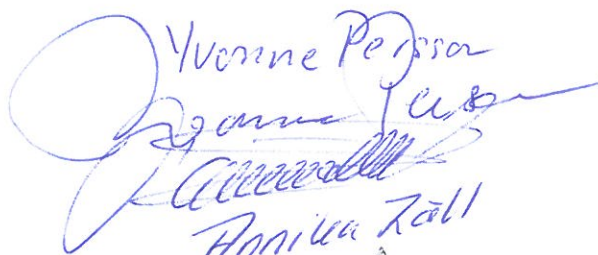 Yvonne Persson
Yvonne Persson
Annika Zäll